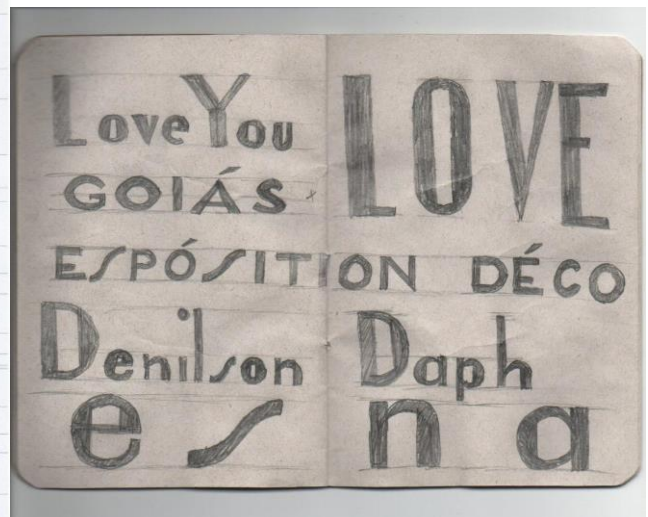 Love You
LOVE
GOIÁS
ESPÓSITION DÉCO
Denilson Daph
e s n a